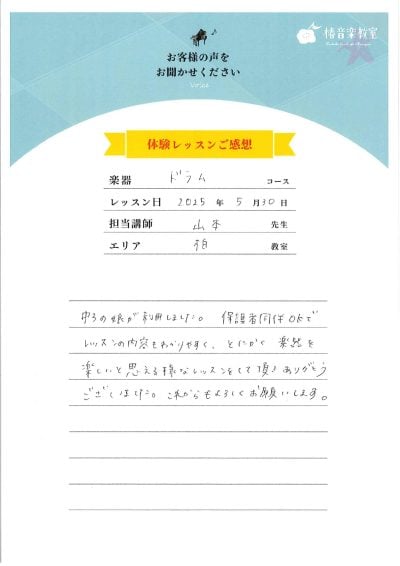 椿音楽教室
お客様の声を
お聞かせください
Voice
体験レッスンご感想
楽器 ドラム コース
レッスン日 2025年 5月30日
担当講師 山本 先生
エリア 柏 教室
中3の娘が利用しました。 保護者同伴OKで
レッスンの内容もわかりやすく、とにかく 楽器を
楽しいと思える様なレッスンをして頂きありがとう
ございました。これからもよろしくお願いします。